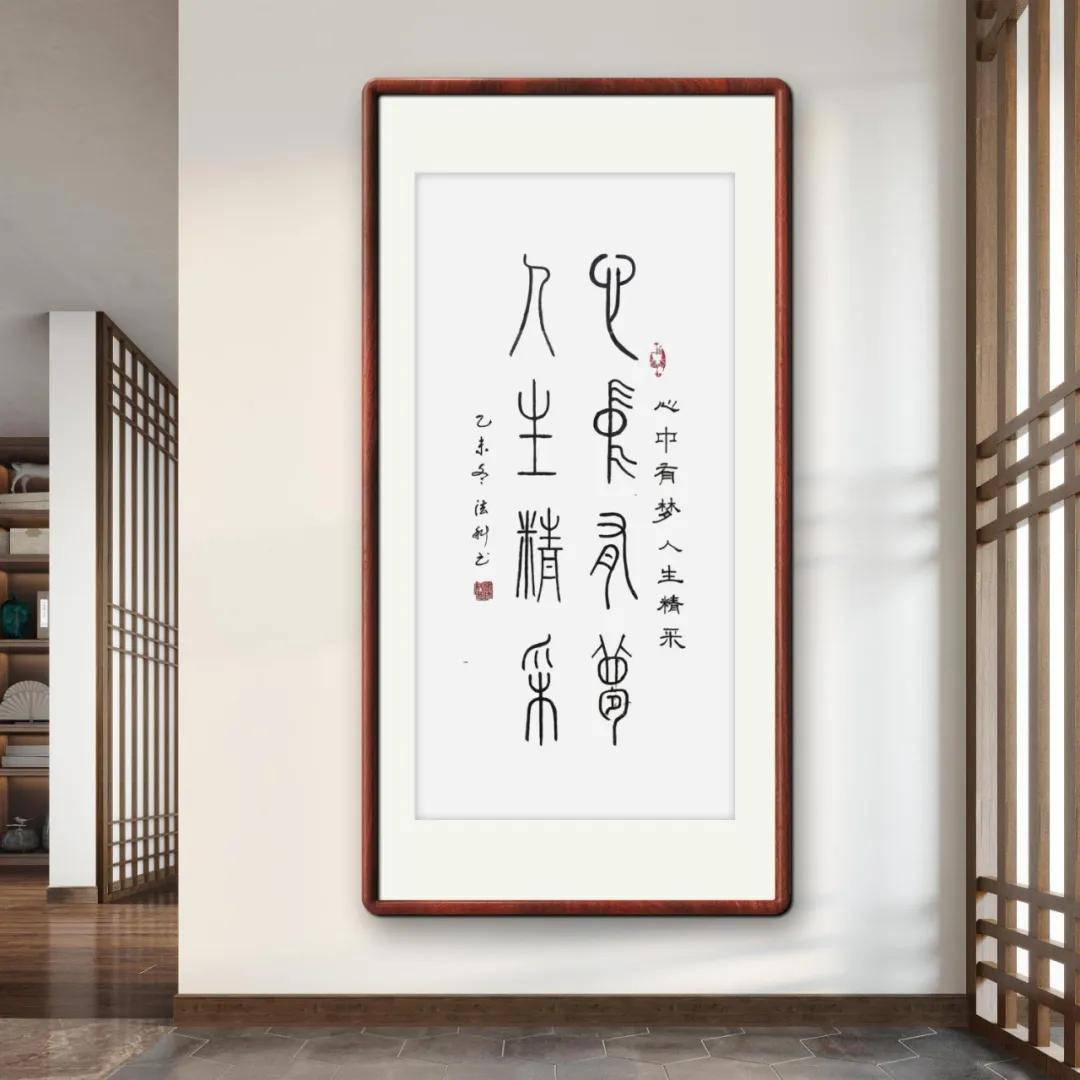 心中有梦人生精采
心中有夢
人生精采
乙未冬法书